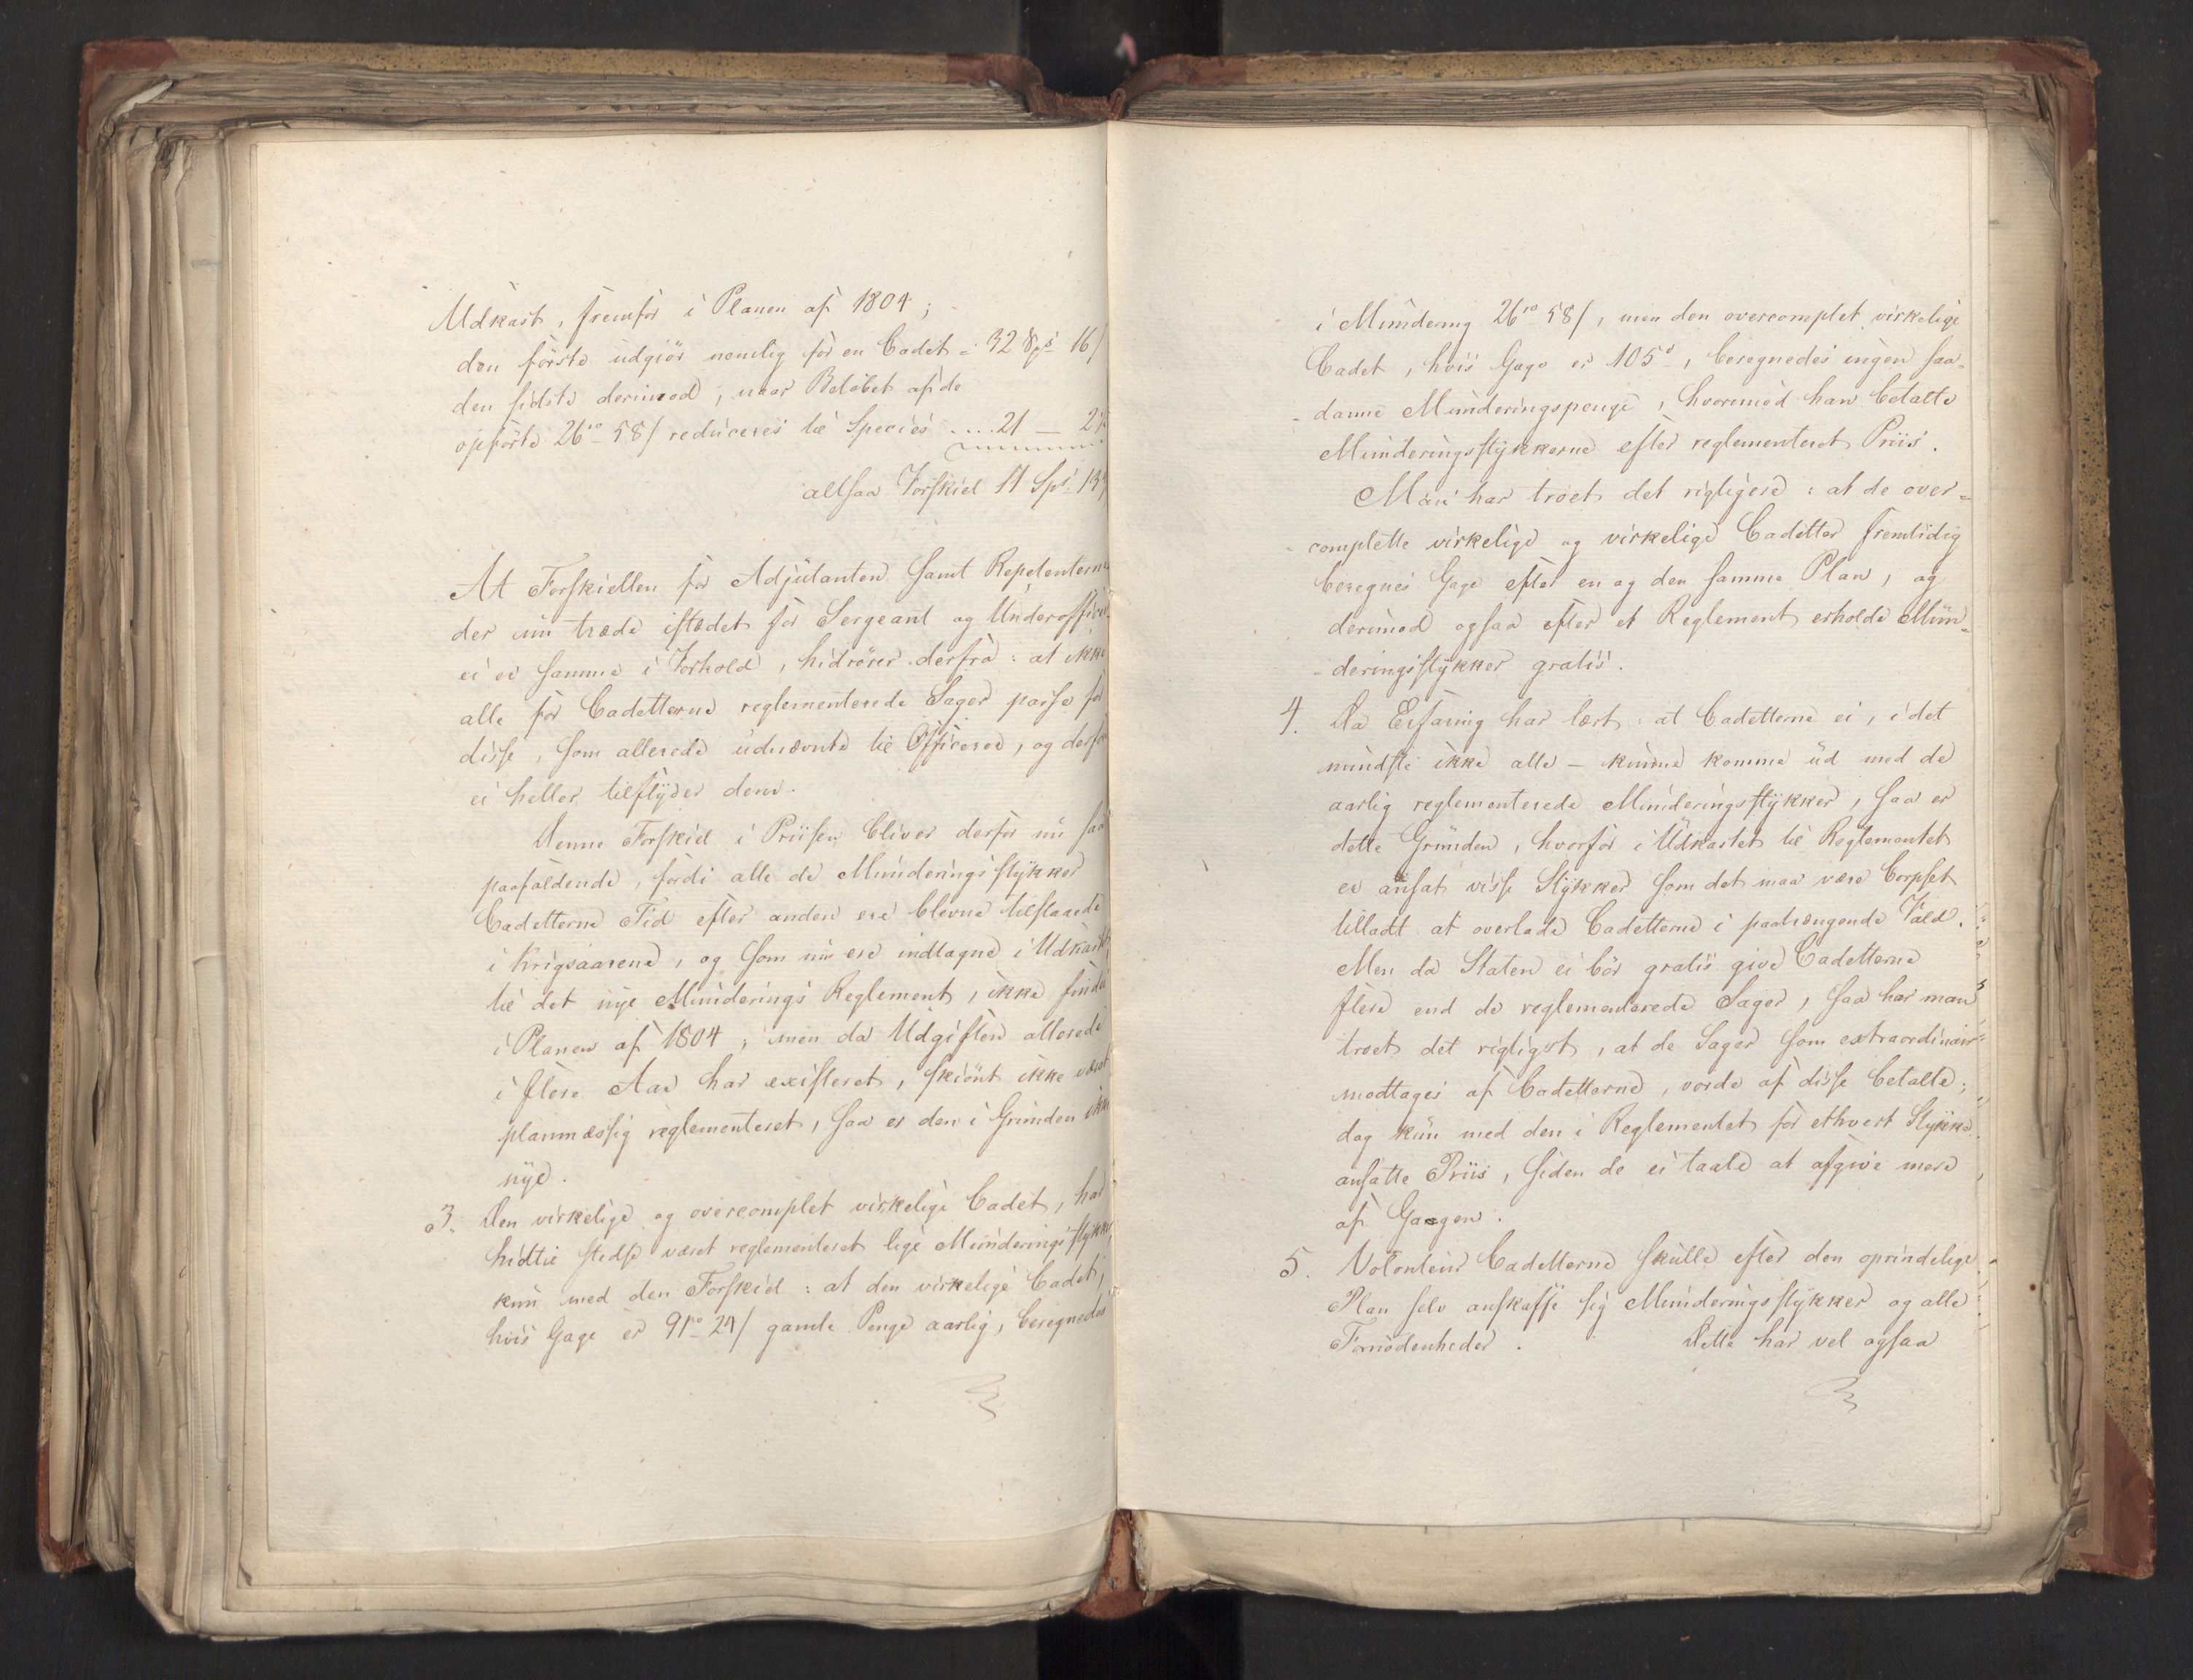 Udkast, fremfor i Planen af 1804;
den første udgiør nemlig for en Cadet = 32 Sps 16/
den sidste derimod, naar Beløbet af de
opførte 26 rd 58/ reduceres til Species .... 21 — 2/
altsaa Forskiel 11 Sps 13/
At Forskiellen for Adjutanten samt Repetenterne
der nu træde istædet for Sergeant og Underofficer
ei er samme i Forhold, hidrører derfra: at ikke
alle for Cadetterne reglementerede Sager passe for
disse, som allerede udnævnte til Officerer, og derfor
ei heller tilflyder dem.
Denne Forskiel i Priisen bliver derfor nu saa
paafaldende, fordi alle de Munderingsstykker
Cadetterne Tid efter anden ere blevne tilstaaede
i Krigsaarene, og som nu ere indtagne i Udkastet
til det nye Munderings Reglement, ikke findes
i Planen af 1804; men da Udgiften allerede
i flere Aar har existeret, skiönt ikke været
planmæssig reglementeret, saa er den i Grunden ikke
nye.
3. Den virkelige og overcomplet virkelige Cadet, har
hidtil stedse været reglementeret lige Munderingsstykker
kun med den Forskiel: at den virkelige Cadet,
hvis Gage er 91 rd 24/ gamle Penge aarlig, beregnedes
i Mundering 26 rd 58/, men den overcomplet virkelige
Cadet, hvis Gage er 105 d, beregnedes ingen saa-
-danne Munderingspenge, hvorimod han betalte
Munderingsstykkerne efter reglementeret Priis.
Man har troet det rigtigere: at de over-
-complette virkelige og virkelige Cadetter fremtidig
beregnes Gage efter en og den samme Plan, og
derimod ogsaa efter et Reglement erholde Mun-
-deringsstykker gratis.
4. Da Erfaring har lært: at Cadetterne ei, i det
mindste ikke alle – kunne komme ud med de
aarlig reglementerede Munderingsstykker, saa er
dette Grunden, hvorfor i Udkastet til Reglementet
er ansat visse Stykker som det maa være Corpset
tilladt at overlade Cadetterne i paatrængende Fald.
Men da Staten ei bör gratis give Cadetterne
flere end de reglementerede Sager, saa har man
troet det rigtigst, at de Sager som extraordinair
modtages af Cadetterne, vorde af disse betalte;
dog kun med den i Reglementet for ethvert Stykke
ansatte Priis, siden de ei taale at afgive mere
af Gagen.
5. Volontair Cadetterne skulle efter den oprindelige
Plan selv anskaffe sig Munderingsstykker og alle
Fornödenheder. Dette har vel ogsaa